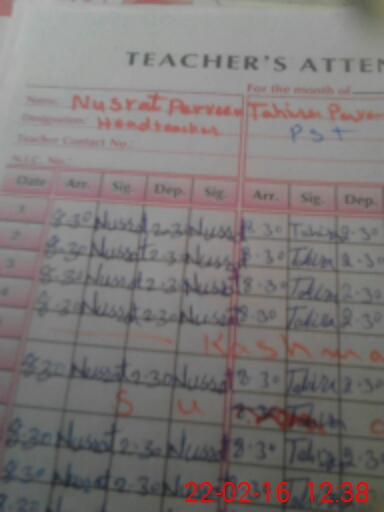 TEACHER'S ATTEN
For the month of
Name: Nusrat Parveen Tahira Parve
Designation: Headteacher PST
Teacher Contact No:
N.I.C. No:
Date Arr. Sig. Dep. Sig. Arr. Sig. Dep.
1 8:30 Nusrat 2:30 Nusrat 8:30 Tahira 2:30
2 8:30 Nusrat 2:30 Nusrat 8:30 Tahira 2:30
3 8:30 Nusrat 2:30 Nusrat 8:30 Tahira 2:30
4 8:30 Nusrat 2:30 Nusrat 8:30 Tahira 2:30
Kashma
8:30 Nusrat 2:30 Nusrat 8:30 Tahira 2:30
S U
8:30 Nusrat 2:30 Nusrat 8:30 Tahira 2:30
8:30 Nusrat 2:30 Nusrat 8:30 Tahira 2:30
22-02-16 12:38